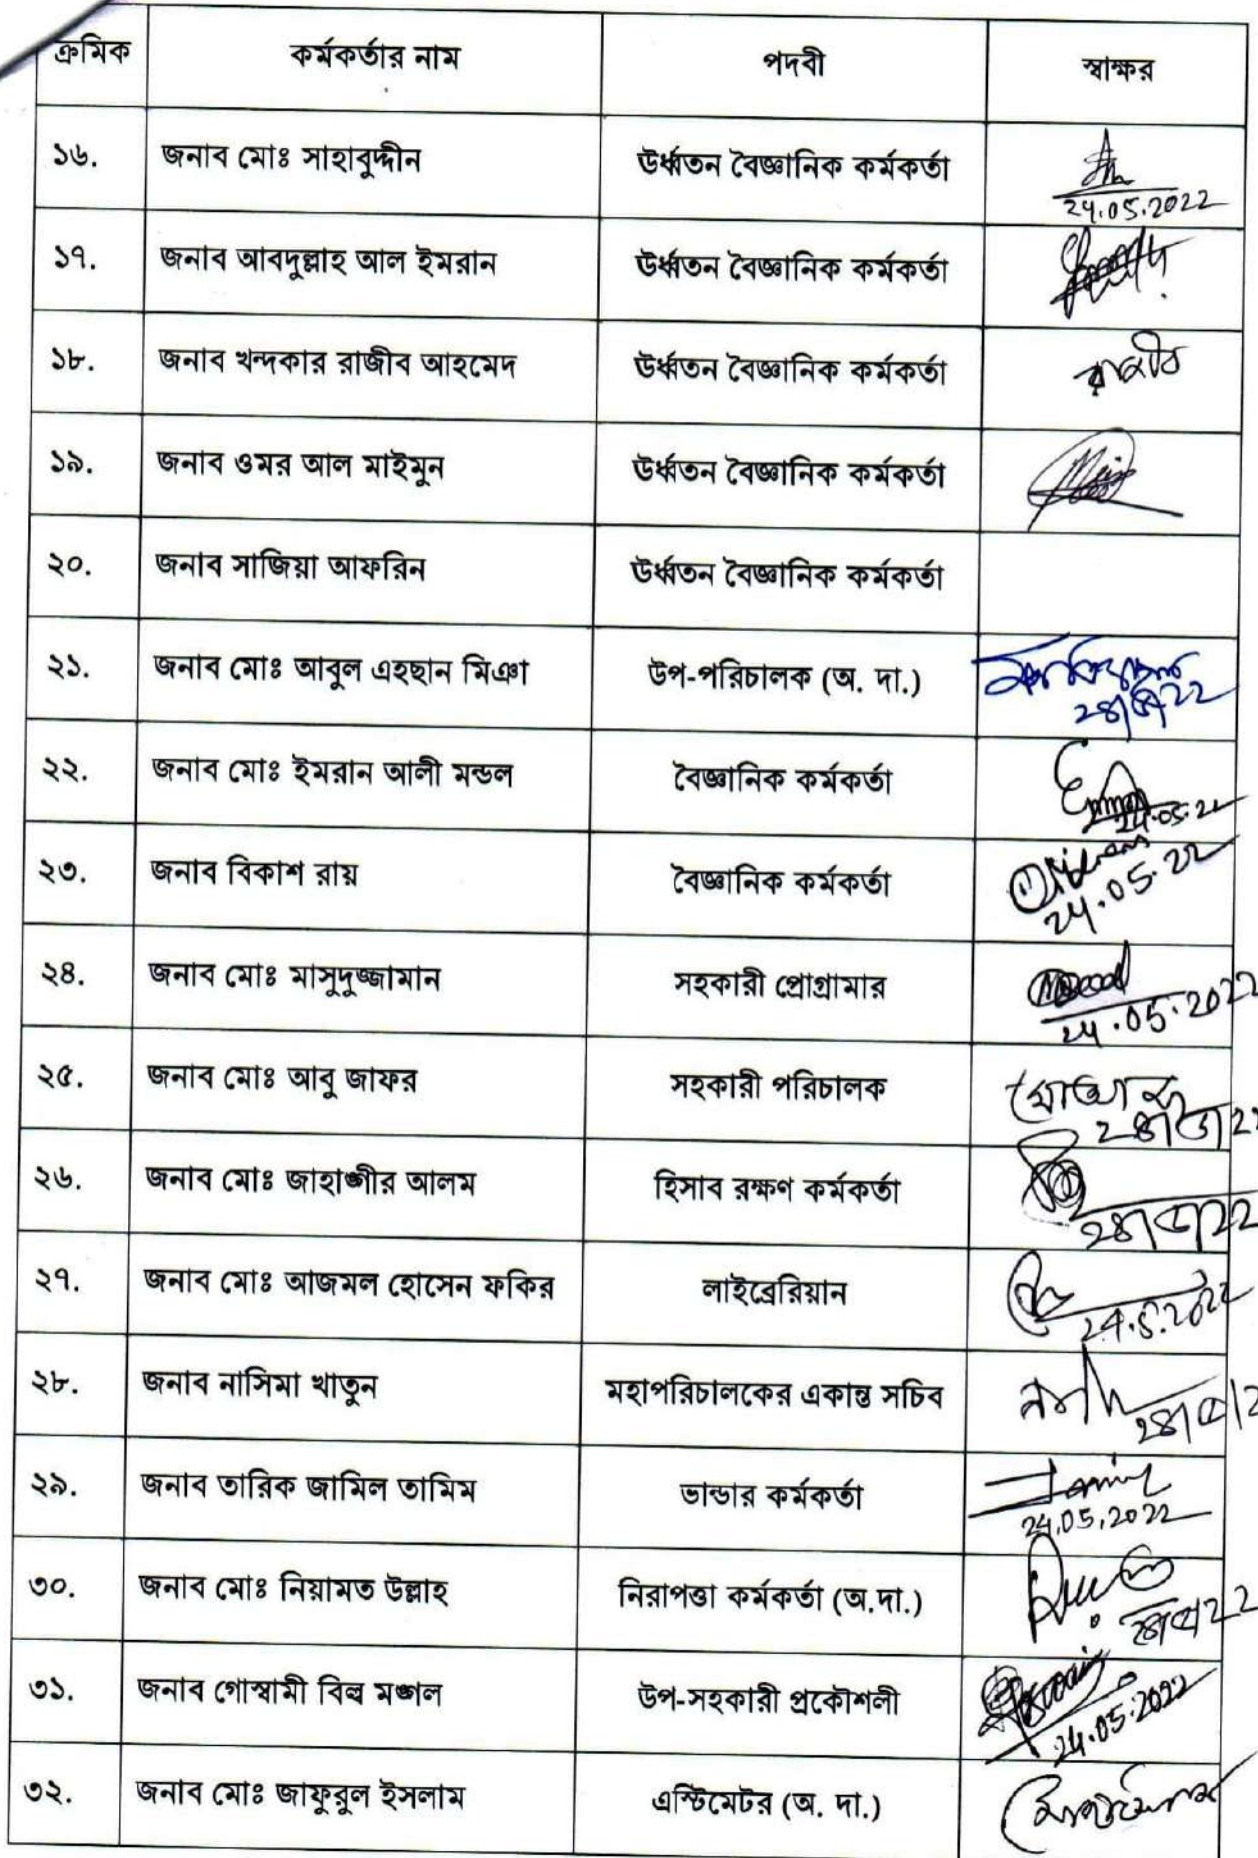 ক্রমিক কর্মকর্তার নাম পদবী স্বাক্ষর
১৬. জনাব মোঃ সাহাবুদ্দীন উর্ধ্বতন বৈজ্ঞানিক কর্মকর্তা
24.05.2022
১৭. জনাব আবদুল্লাহ আল ইমরান উর্ধ্বতন বৈজ্ঞানিক কর্মকর্তা
১৮. জনাব খন্দকার রাজীব আহমেদ উর্ধ্বতন বৈজ্ঞানিক কর্মকর্তা রাজীব
১৯. জনাব ওমর আল মাইমুন উর্ধ্বতন বৈজ্ঞানিক কর্মকর্তা
২০. জনাব সাজিয়া আফরিন উর্ধ্বতন বৈজ্ঞানিক কর্মকর্তা
২১. জনাব মোঃ আবুল এহছান মিঞা উপ-পরিচালক (অ. দা.)
২৪/৫/২২
২২. জনাব মোঃ ইমরান আলী মন্ডল বৈজ্ঞানিক কর্মকর্তা
24.05.22
২৩. জনাব বিকাশ রায় বৈজ্ঞানিক কর্মকর্তা
24.05.22
২৪. জনাব মোঃ মাসুদুজ্জামান সহকারী প্রোগ্রামার
24.05.2022
২৫. জনাব মোঃ আবু জাফর সহকারী পরিচালক
২৬. জনাব মোঃ জাহাঙ্গীর আলম হিসাব রক্ষণ কর্মকর্তা
২৪/৫/২২
২৭. জনাব মোঃ আজমল হোসেন ফকির লাইব্রেরিয়ান
24.5.2022
২৮. জনাব নাসিমা খাতুন মহাপরিচালকের একান্ত সচিব
২৯. জনাব তারিক জামিল তামিম ভান্ডার কর্মকর্তা
24.05.2022
৩০. জনাব মোঃ নিয়ামত উল্লাহ নিরাপত্তা কর্মকর্তা (অ.দা.)
২৪/৫/২২
৩১. জনাব গোস্বামী বিল্ব মঙ্গল উপ-সহকারী প্রকৌশলী
24.05.2022
৩২. জনাব মোঃ জাফুরুল ইসলাম এস্টিমেটর (অ. দা.)